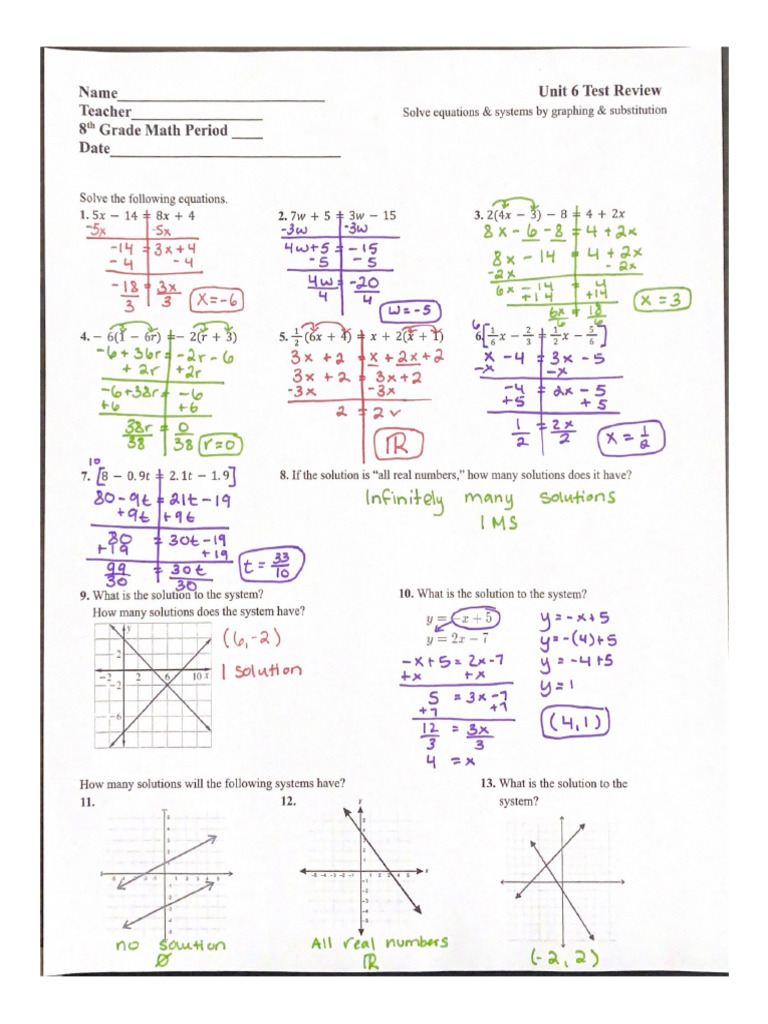 Name
Unit 6 Test Review
Teacher
Solve equations & systems by graphing & substitution
8th Grade Math Period
Date
Solve the following equations.
1. 5x − 14 = 8x + 4
-5x -5x
-14 = 3x + 4
-4 -4
-18/3 = 3x/3
x = -6
2. 7w + 5 = 3w − 15
-3w -3w
4w + 5 = -15
-5 -5
4w/4 = -20/4
w = -5
3. 2(4x − 3) − 8 = 4 + 2x
8x - 6 - 8 = 4 + 2x
8x - 14 = 4 + 2x
-2x -2x
6x - 14 = 4
+14 +14
6x/6 = 18/6
x = 3
4. − 6(1 − 6r) = − 2(r + 3)
-6 + 36r = -2r - 6
+2r +2r
-6 + 38r = -6
+6 +6
38r/38 = 0/38
r = 0
5. 1/2(6x + 4) = x + 2(x + 1)
3x + 2 = x + 2x + 2
3x + 2 = 3x + 2
-3x -3x
2 = 2 ✓
ℝ
6
6. [1/6x − 2/3 = 1/2x − 5/6]
x - 4 = 3x - 5
-x -x
-4 = 2x - 5
+5 +5
1/2 = 2x/2
x = 1/2
10
7. [8 − 0.9t = 2.1t − 1.9]
80 - 9t = 21t - 19
+9t +9t
80 = 30t - 19
+19 +19
99/30 = 30t/30
t = 33/10
8. If the solution is “all real numbers,” how many solutions does it have?
Infinitely many solutions
IMS
9. What is the solution to the system?
How many solutions does the system have?
(6,-2)
1 solution
y
2
-2 2 6 10 x
-2
-6
10. What is the solution to the system?
y = −x + 5
y = 2x − 7
-x + 5 = 2x - 7
+x +x
5 = 3x - 7
+7 +7
12/3 = 3x/3
4 = x
y = -x + 5
y = -(4) + 5
y = -4 + 5
y = 1
(4,1)
How many solutions will the following systems have?
11.
no solution
∅
12.
All real numbers
ℝ
13. What is the solution to the
system?
(-2, 2)